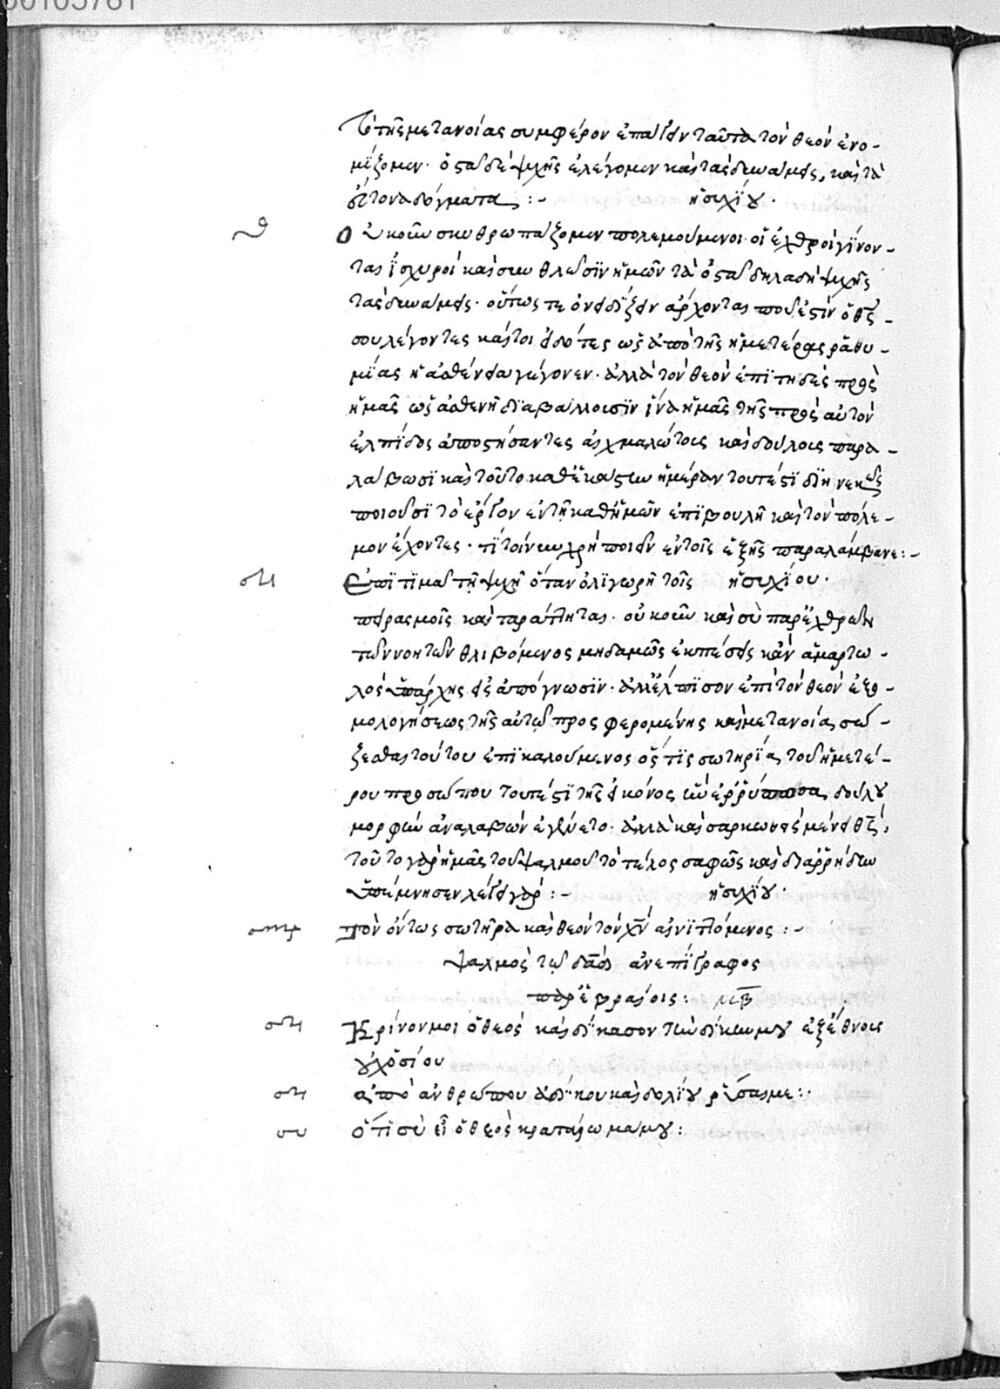 τὸ τῆς μετανοίας συμφέρον ἐπαγεῖν ταῦτα τὸν θεὸν ἐνο-
μίζομεν· ὀστᾶ δὲ ψυχῆς ἐλέγομεν καὶ τὰς δυνάμεις, καὶ τὰ
δόγματα :- ἡσυχίου·
Οὐκοῦν σκυθρωπάζομεν πολεμούμενοι· οἱ ἐχθροὶ γίνον-
ται ἰσχυροὶ καὶ συνθλῶσιν ἡμῶν τὰ ὀστᾶ δηλαδὴ ψυχῆς
τὰς δυνάμεις· οὕτως τε ὀνειδίζειν ἄρχονται ποῦ ἐστὶν ὁ θς-
σου λέγοντες καίτοι εἰδότες ὡς ἀπὸ τῆς ἡμετέρας ῥαθυ-
μίας ἡ ἀσθένεια γέγονεν· ἀλλὰ τὸν θεὸν ἐπίτηδες πρὸς
ἡμᾶς ὡς ἀσθενῆ διαβάλλουσιν ἵνα ἡμᾶς τῆς πρὸς αὐτὸν
ἐλπίδος ἀποστήσαντες αἰχμαλώτοις καὶ δούλοις παρα-
λάβωσι καὶ τοῦτο καθ' ἑκάστην ἡμέραν τουτέστι διηνεκῶς
ποιοῦσι τὸ ἔργον ἐν τῇ καθ' ἡμῶν ἐπιβουλῇ καὶ τὸν πόλε-
μον ἔχοντες· τί τοίνυν χρὴ ποιεῖν ἐν τοῖς ἑξῆς παραλάμβανε :-
Ἐπιτιμᾷ τῇ ψυχῇ ὅταν ὀλιγωρῇ τοῖς ἡσυχίου·
πειρασμοῖς καὶ ταράττηται· οὐκοῦν καὶ σὺ παρ' ἐχθρῶν
τῶν νοητῶν θλιβόμενος μηδαμῶς ἐκπέσῃς κἂν ἁμαρτω-
λὸς ὑπάρχῃς εἰς ἀπόγνωσιν· ἀλλ' ἔλπισον ἐπὶ τὸν θεὸν ἐξο-
μολογήσεως τῆς αὐτῷ προσφερομένης καὶ μετανοίας σώ-
ζεσθαι τούτου ἐπικαλούμενος ὅς τις σωτηρία τοῦ ἡμετέ-
ρου προσώπου τουτέστι τῆς εἰκόνος δούλου
μορφὴν ἀναλαβὼν ἐγένετο· ἀλλὰ καὶ σαρκωθεὶς μένει θς,
τοῦτο γὰρ ἡμᾶς τοῦ ψαλμοῦ τὸ τέλος σαφῶς καὶ διαρρήδην
ὑπέμνησεν λέγει γάρ :- ἡσυχίου·
Τὸν ὄντως σωτῆρα καὶ θεὸν τὸν χν αἰνιττόμενος :-
ψαλμὸς τῷ δαδ ἀνεπίγραφος
παρ' ἑβραίοις : μβ
στι Κρῖνον μοι ὁ θεὸς καὶ δίκασον τὴν δίκην μου ἐξ ἔθνους
οὐχ ὁσίου
στι ἀπὸ ἀνθρώπου ἀδίκου καὶ δολίου ῥῦσαι με :·
συ ὅτι σὺ εἶ ὁ θεὸς κραταίωμά μου :